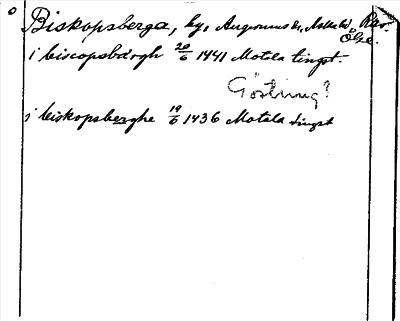 Biskopsberga, by, Rev.
Ölse.
i biscopsbărgh 20/6 1441 Motala tingst.
Göstring?
i biskopsberghe 19/6 1436 Motala tingst